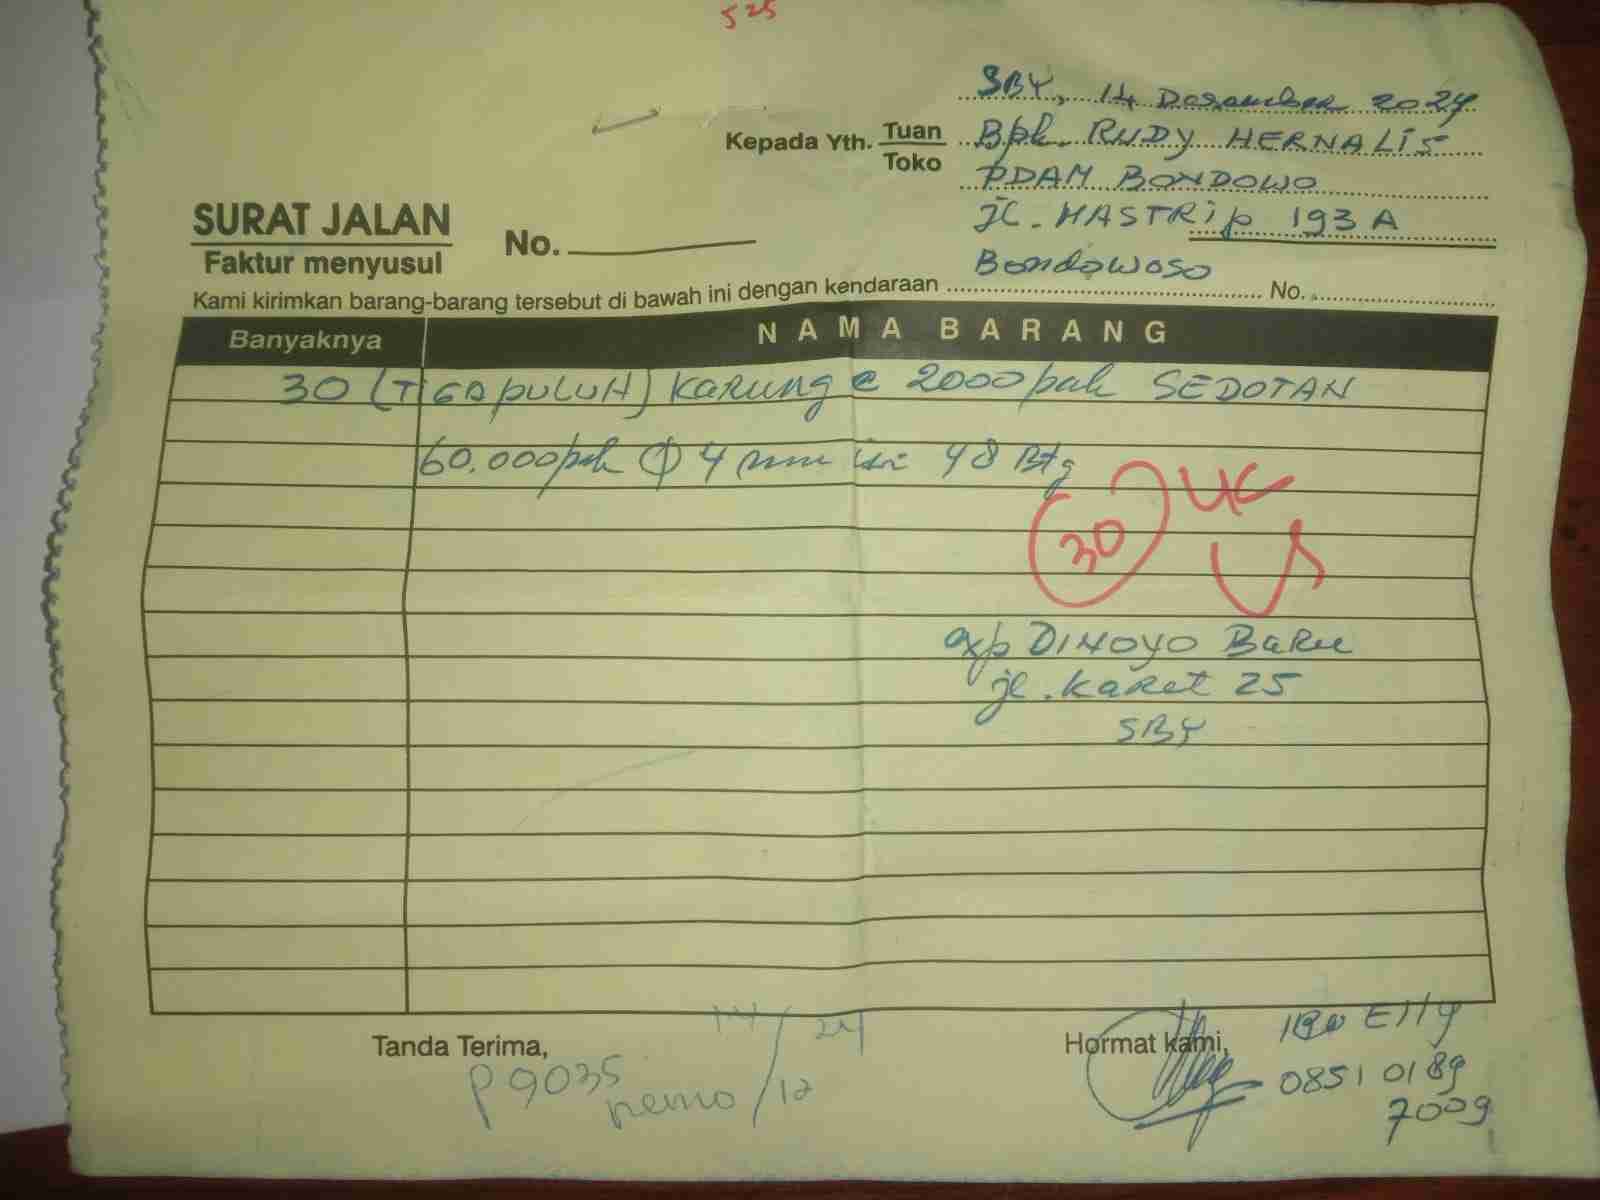 525
SBY, 14 Desember 2024
Kepada Yth. Tuan Bpk. RUDY HERNALIS
Toko PDAM BONDOWO
SURAT JALAN No. jl. MASTRip 193 A
Faktur menyusul Bondowoso
Kami kirimkan barang-barang tersebut di bawah ini dengan kendaraan No.
Banyaknya NAMA BARANG
30 (TIGAPULUH) Karung @ 2000 pak SEDOTAN
60.000 pak Φ 4 mm isi 48 Btg
30
exp DINOYO BARu
jl. Karet 25
SBY
Tanda Terima, 14/12 24 Hormat kami, IBu Elly
P 9035 0851 0189
7009